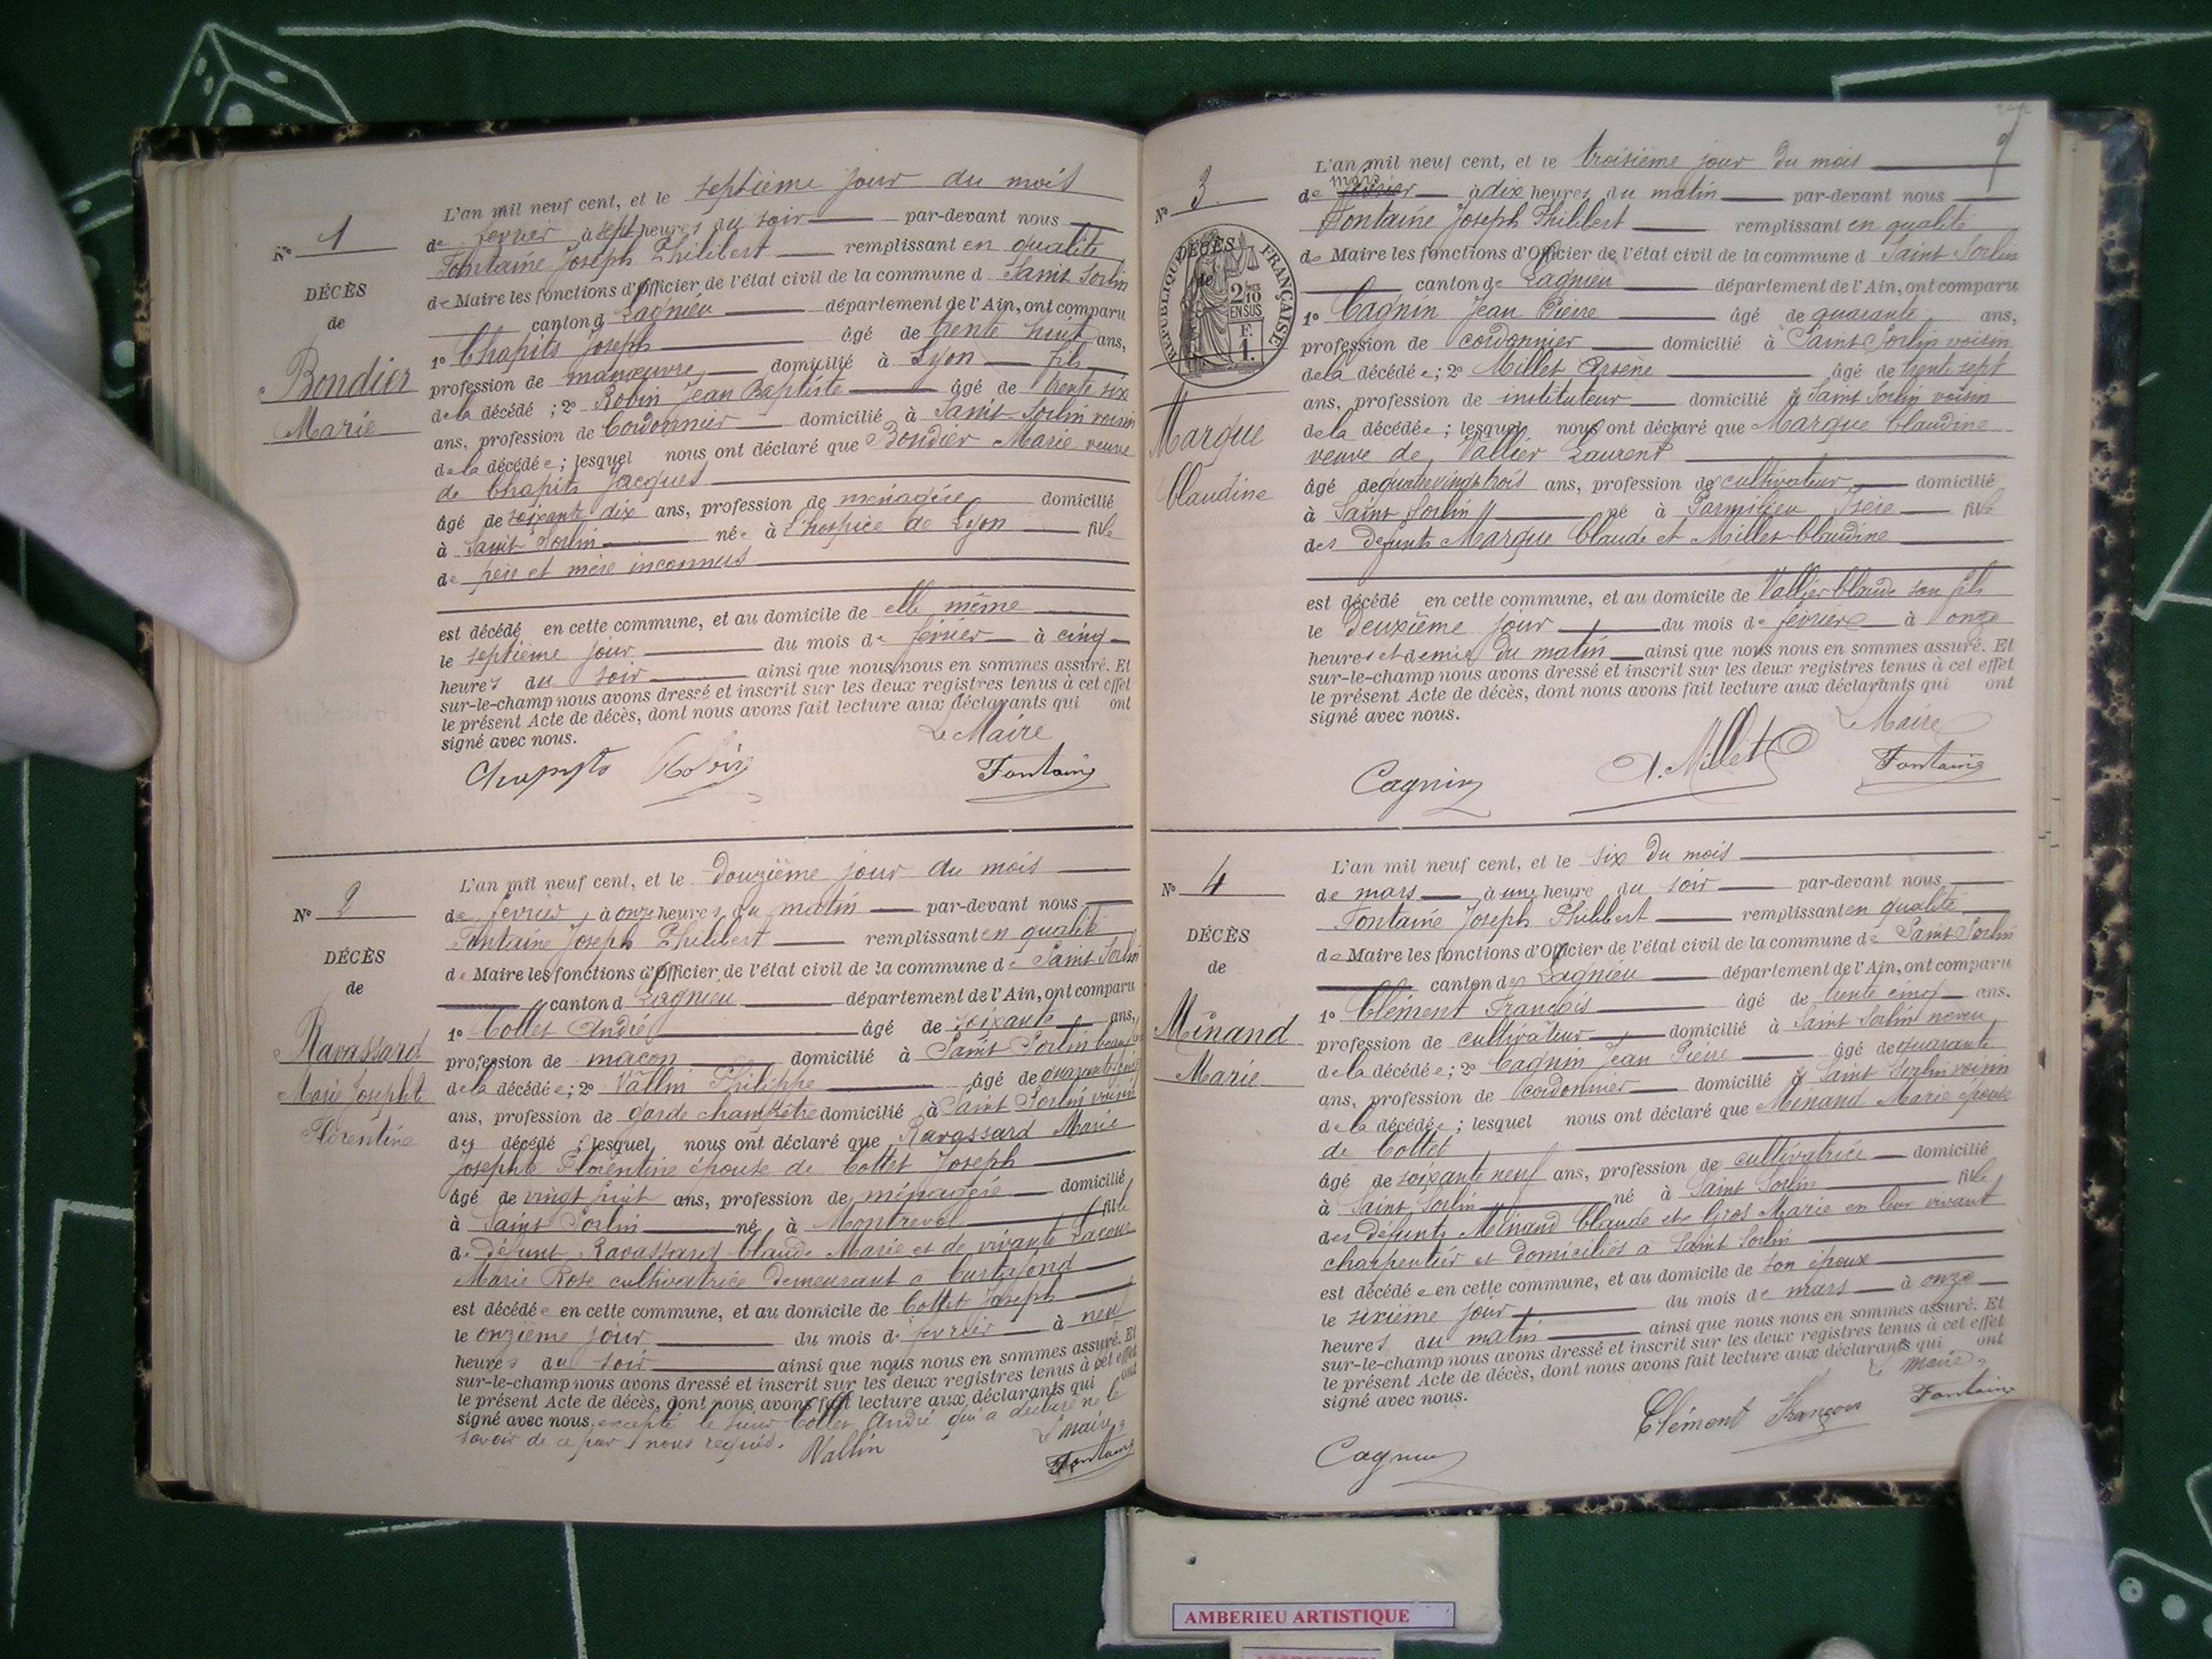 N° 1
DÉCÈS
de
Bondier
Marie
L'an mil neuf cent, et le septième jour du mois
de fevrier à sept heures du soir par-devant nous
Fontaine Joseph Philibert remplissant en qualité
de Maire les fonctions d'Officier de l'état civil de la commune d Saint Sorlin
canton d Lagnieu département de l'Ain, ont comparu
1° Chapits Joseph âgé de trente huit ans,
profession de manœuvre domicilié à Lyon fils
de la décédé ; 2° Robin Jean Baptiste âgé de trente six
ans, profession de Cordonnier domicilié à Saint Sorlin voisin
de la décédée ; lesquel nous ont déclaré que Bondier Marie veuve
de Chapits Jacques
âgé de soixante dix ans, profession de menagère domicilié
à Saint Sorlin née à l'hospice de Lyon fille
de père et mère inconnus
est décédé en cette commune, et au domicile de elle même
le septième jour du mois de février à cinq
heures du soir ainsi que nous nous en sommes assuré. Et
sur-le-champ nous avons dressé et inscrit sur les deux registres tenus à cet effet
le présent Acte de décès, dont nous avons fait lecture aux déclarants qui ont
signé avec nous.
Le Maire
Robin Fontaine
N° 2
DÉCÈS
de
Ravassard
Marie Josephte
Florentine
L'an mil neuf cent, et le Douzième jour du mois
de fevrier à onze heures du matin par-devant nous
Fontaine Joseph Philibert remplissant en qualité
de Maire les fonctions d'Officier de l'état civil de la commune de Saint Sorlin
canton d Lagnieu département de l'Ain, ont comparu
1° Cottet André âgé de soixante ans,
profession de maçon domicilié à Saint Sorlin
de la décédée ; 2° Vallin Philippe âgé de
ans, profession de garde champêtre domicilié à Saint Sorlin voisin
des décédé ; lesquel nous ont déclaré que Ravassard Marie
Josephte Florentine épouse de Cottet Joseph
âgé de vingt huit ans, profession de ménagère domicilié
à Saint Sorlin né à Montrevel fille
de défunt Ravassard Claude Marie et de vivante Lacour
Marie Rose cultivatrice demeurant à Curtafond
est décédée en cette commune, et au domicile de Cottet Joseph
le onzième jour du mois de fevrier à neuf
heures du soir ainsi que nous nous en sommes assuré. Et
sur-le-champ nous avons dressé et inscrit sur les deux registres tenus à cet effet
le présent Acte de décès, dont nous avons fait lecture aux déclarants qui ont
signé avec nous. excepté le sieur Cottet André qui a déclaré ne le
savoir de ce par nous requis. Le maire
Vallin Fontaine
9
N° 3
DÉCÈS
de
RÉPUBLIQUE FRANÇAISE
2/10 EN SUS
F. 1.
Marque
Claudine
L'an mil neuf cent, et le troisième jour du mois
mars
de février à dix heures du matin par-devant nous
Fontaine Joseph Philibert remplissant en qualité
de Maire les fonctions d'Officier de l'état civil de la commune d Saint Sorlin
canton de Lagnieu département de l'Ain, ont comparu
1° Cagnin Jean Pierre âgé de quarante ans,
profession de cordonnier domicilié à Saint Sorlin voisin
de la décédée ; 2° Millet Arsène âgé de trente sept
ans, profession de instituteur domicilié à Saint Sorlin voisin
de la décédée ; lesquel nous ont déclaré que Marque Claudine
veuve de Vallier Laurent
âgé de quatre vingt trois ans, profession de cultivateur domicilié
à Saint Sorlin né à Parmilieu Isère fille
des défunts Marque Claude et Millet Claudine
est décédé en cette commune, et au domicile de Vallier Claude son fils
le Deuxième jour du mois de février à onze
heures et demie du matin ainsi que nous nous en sommes assuré. Et
sur-le-champ nous avons dressé et inscrit sur les deux registres tenus à cet effet
le présent Acte de décès, dont nous avons fait lecture aux déclarants qui ont
signé avec nous.
Le Maire
Cagnin A. Millet Fontaine
N° 4
DÉCÈS
de
Minand
Marie
L'an mil neuf cent, et le six du mois
de mars à une heure du soir par-devant nous
Fontaine Joseph Philibert remplissant en qualité
de Maire les fonctions d'Officier de l'état civil de la commune de Saint Sorlin
canton de Lagnieu département de l'Ain, ont comparu
1° Clément François âgé de trente cinq ans.
profession de cultivateur domicilié à Saint Sorlin neveu
de la décédée ; 2° Cagnin Jean Pierre âgé de quarante
ans, profession de Cordonnier domicilié à Saint Sorlin voisin
de la décédée ; lesquel nous ont déclaré que Minand Marie épouse
de Cottet
âgé de soixante neuf ans, profession de cultivatrice domicilié
à Saint Sorlin né à Saint Sorlin fille
des défunts Minand Claude et Gros Marie en leur vivant
charpentier et domiciliés à Saint Sorlin
est décédée en cette commune, et au domicile de son époux
le sixième jour du mois de mars à onze
heures du matin ainsi que nous nous en sommes assuré. Et
sur-le-champ nous avons dressé et inscrit sur les deux registres tenus à cet effet
le présent Acte de décès, dont nous avons fait lecture aux déclarants qui ont
signé avec nous.
Le maire
Clément François Fontaine
Cagnin
AMBERIEU ARTISTIQUE